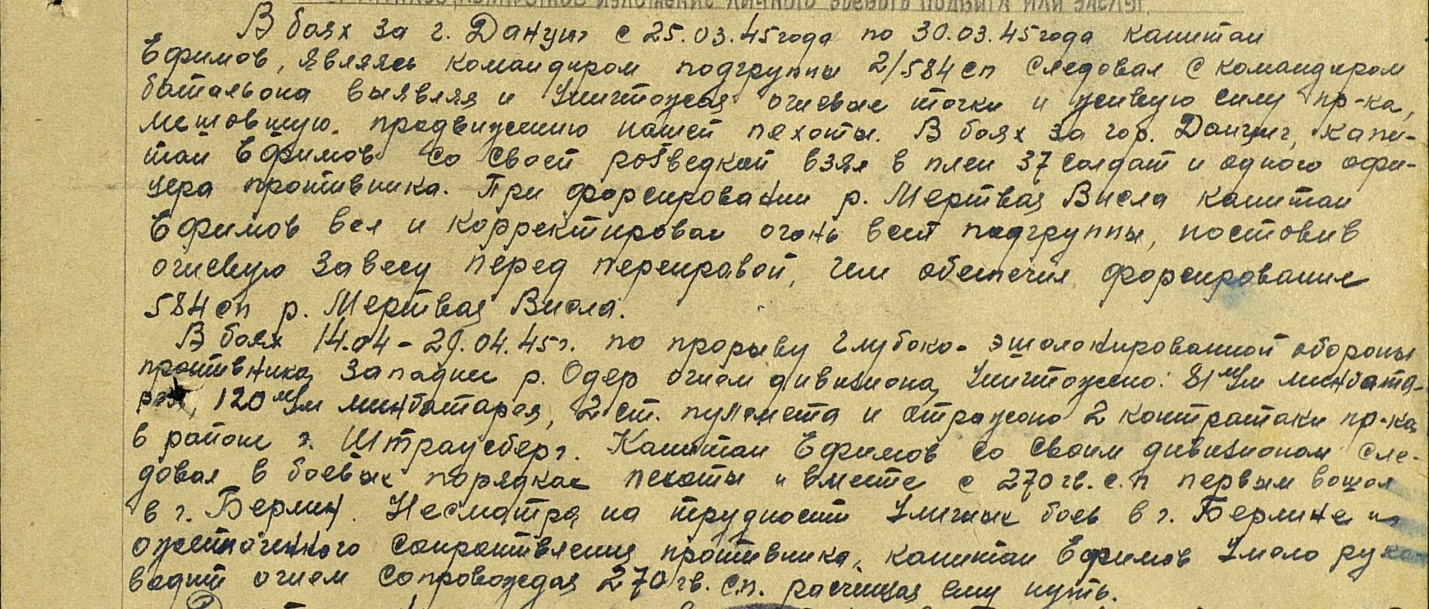 В боях за г. Данциг с 25.03.45 года по 30.03.45 года капитан
Ефимов, являясь командиром подгруппы 2/584 сп следовал с командиром
батальона выявляя и уничтожая огневые точки и живую силу пр-ка,
мешовшую продвижению нашей пехоты. В боях за гор. Данциг, капи-
тан Ефимов со своей розведкой взял в плен 37 солдат и одного офи-
цера противника. При форсировании р. Мертвая Висла капитан
Ефимов вел и корректировал огонь всей подгруппы, поставив
огневую завесу перед переправой, чем обеспечил форсирование
584 сп р. Мертвая Висла.
В боях 14.04 - 29.04.45 г. по прорыву глубоко-эшолонированной обороны
противника западнее р. Одер огнем дивизиона уничтожено: 81 м/м минбата-
рея, 120 м/м минботарея, 2 ст. пулемета и отражено 2 контратаки пр-ка
в районе г. Штраусберг. Капитан Ефимов со своим дивизионом сле-
довал в боевых порядках пехоты и вместе с 270 гв. с.п первым вошол
в г. Берлин. Несмотря на трудности уличных боев в г. Берлине и
ожесточенного сопротивления противника, капитан Ефимов умело руко-
водит огнем сопровождая 270 гв. с.п. расчищая ему путь.